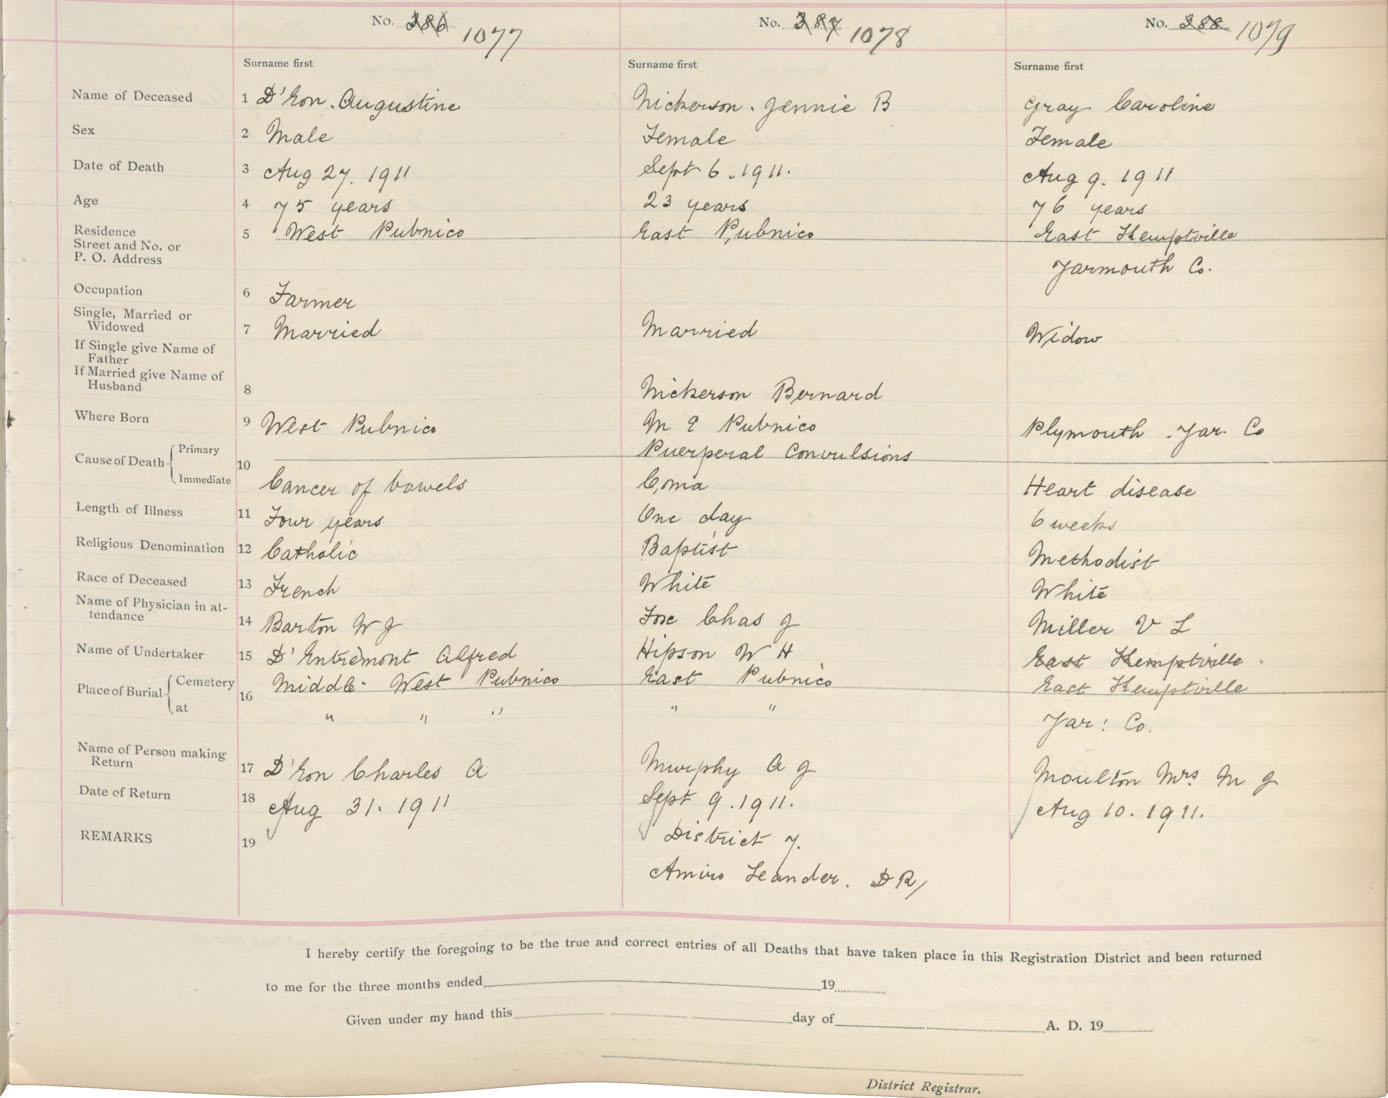 No. 386 1077 No. 387 1078 No. 388 1079
Surname first Surname first Surname first
Name of Deceased 1 D'Eon. Augustine Nickerson. Jennie B Gray Caroline
Sex 2 Male Female Female
Date of Death 3 Aug 27. 1911 Sept 6. 1911. Aug 9. 1911
Age 4 75 years 23 years 76 years
Residence 5 West Pubnico East Pubnico East Kemptville
Street and No. or
P. O. Address Yarmouth Co.
Occupation 6 Farmer
Single, Married or
Widowed 7 Married Married Widow
If Single give Name of
Father
If Married give Name of
Husband 8 Nickerson Bernard
Where Born 9 West Pubnico M E Pubnico Plymouth. Yar. Co
Cause of Death Primary 10 Puerperal Convulsions
Immediate Cancer of bowels Coma Heart disease
Length of Illness 11 Four years One day 6 weeks
Religious Denomination 12 Catholic Baptist Methodist
Race of Deceased 13 French White White
Name of Physician in at-
tendance 14 Barton W J Fox Chas J Miller V L
Name of Undertaker 15 D'Entremont Alfred Hipson W H East Kemptville.
Place of Burial Cemetery 16 Middle West Pubnico East Pubnico East Kemptville
at " " " " " Yar: Co.
Name of Person making
Return 17 D'Eon Charles A Murphy A J Moulton Mrs M J
Date of Return 18 Aug 31. 1911 Sept 9. 1911. Aug 10. 1911.
REMARKS 19 District 7.
Amiro Leander. D R/
I hereby certify the foregoing to be the true and correct entries of all Deaths that have taken place in this Registration District and been returned
to me for the three months ended 19
Given under my hand this day of A. D. 19
District Registrar.